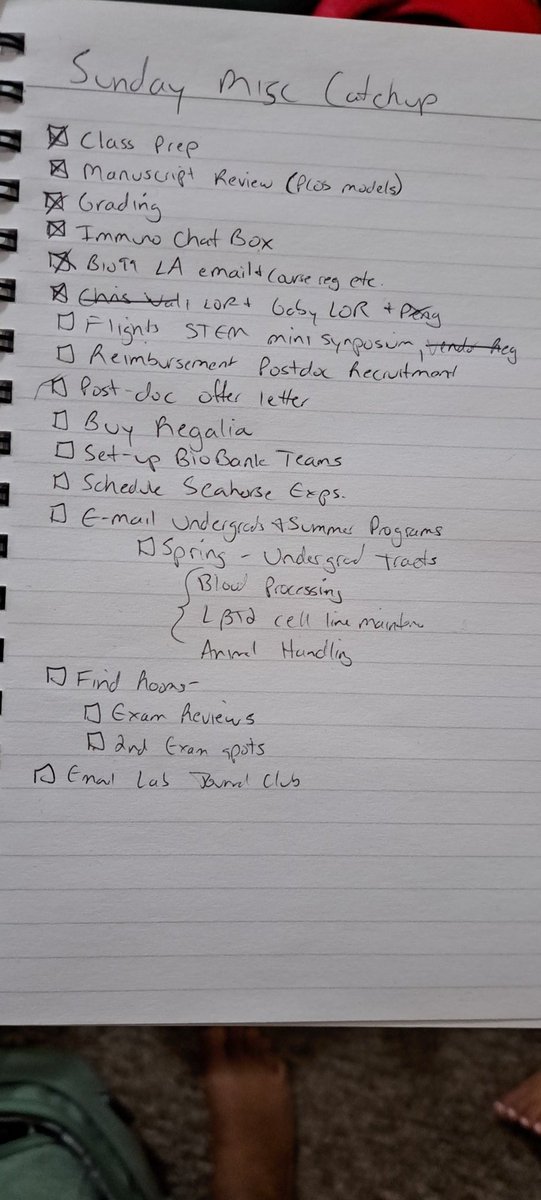 Sunday Misc Catchup
Class Prep
Manuscript Review (PLOS models)
Grading
Immuno Chat Box
Bio99 LA email + Course reg etc.
Chris LOR + Gaby LOR +
Flights STEM mini symposium,
Reimbursement Postdoc Recruitment
Post-doc offer letter
Buy Regalia
Set-up BioBank Teams
Schedule Seahorse Exps.
E-mail Undergrads + Summer Programs
Spring - Undergrad Tracts
Blood Processing
cell line
Animal Handling
Find Rooms -
Exam Reviews
2nd Exam spots
Email Lab Journal Club